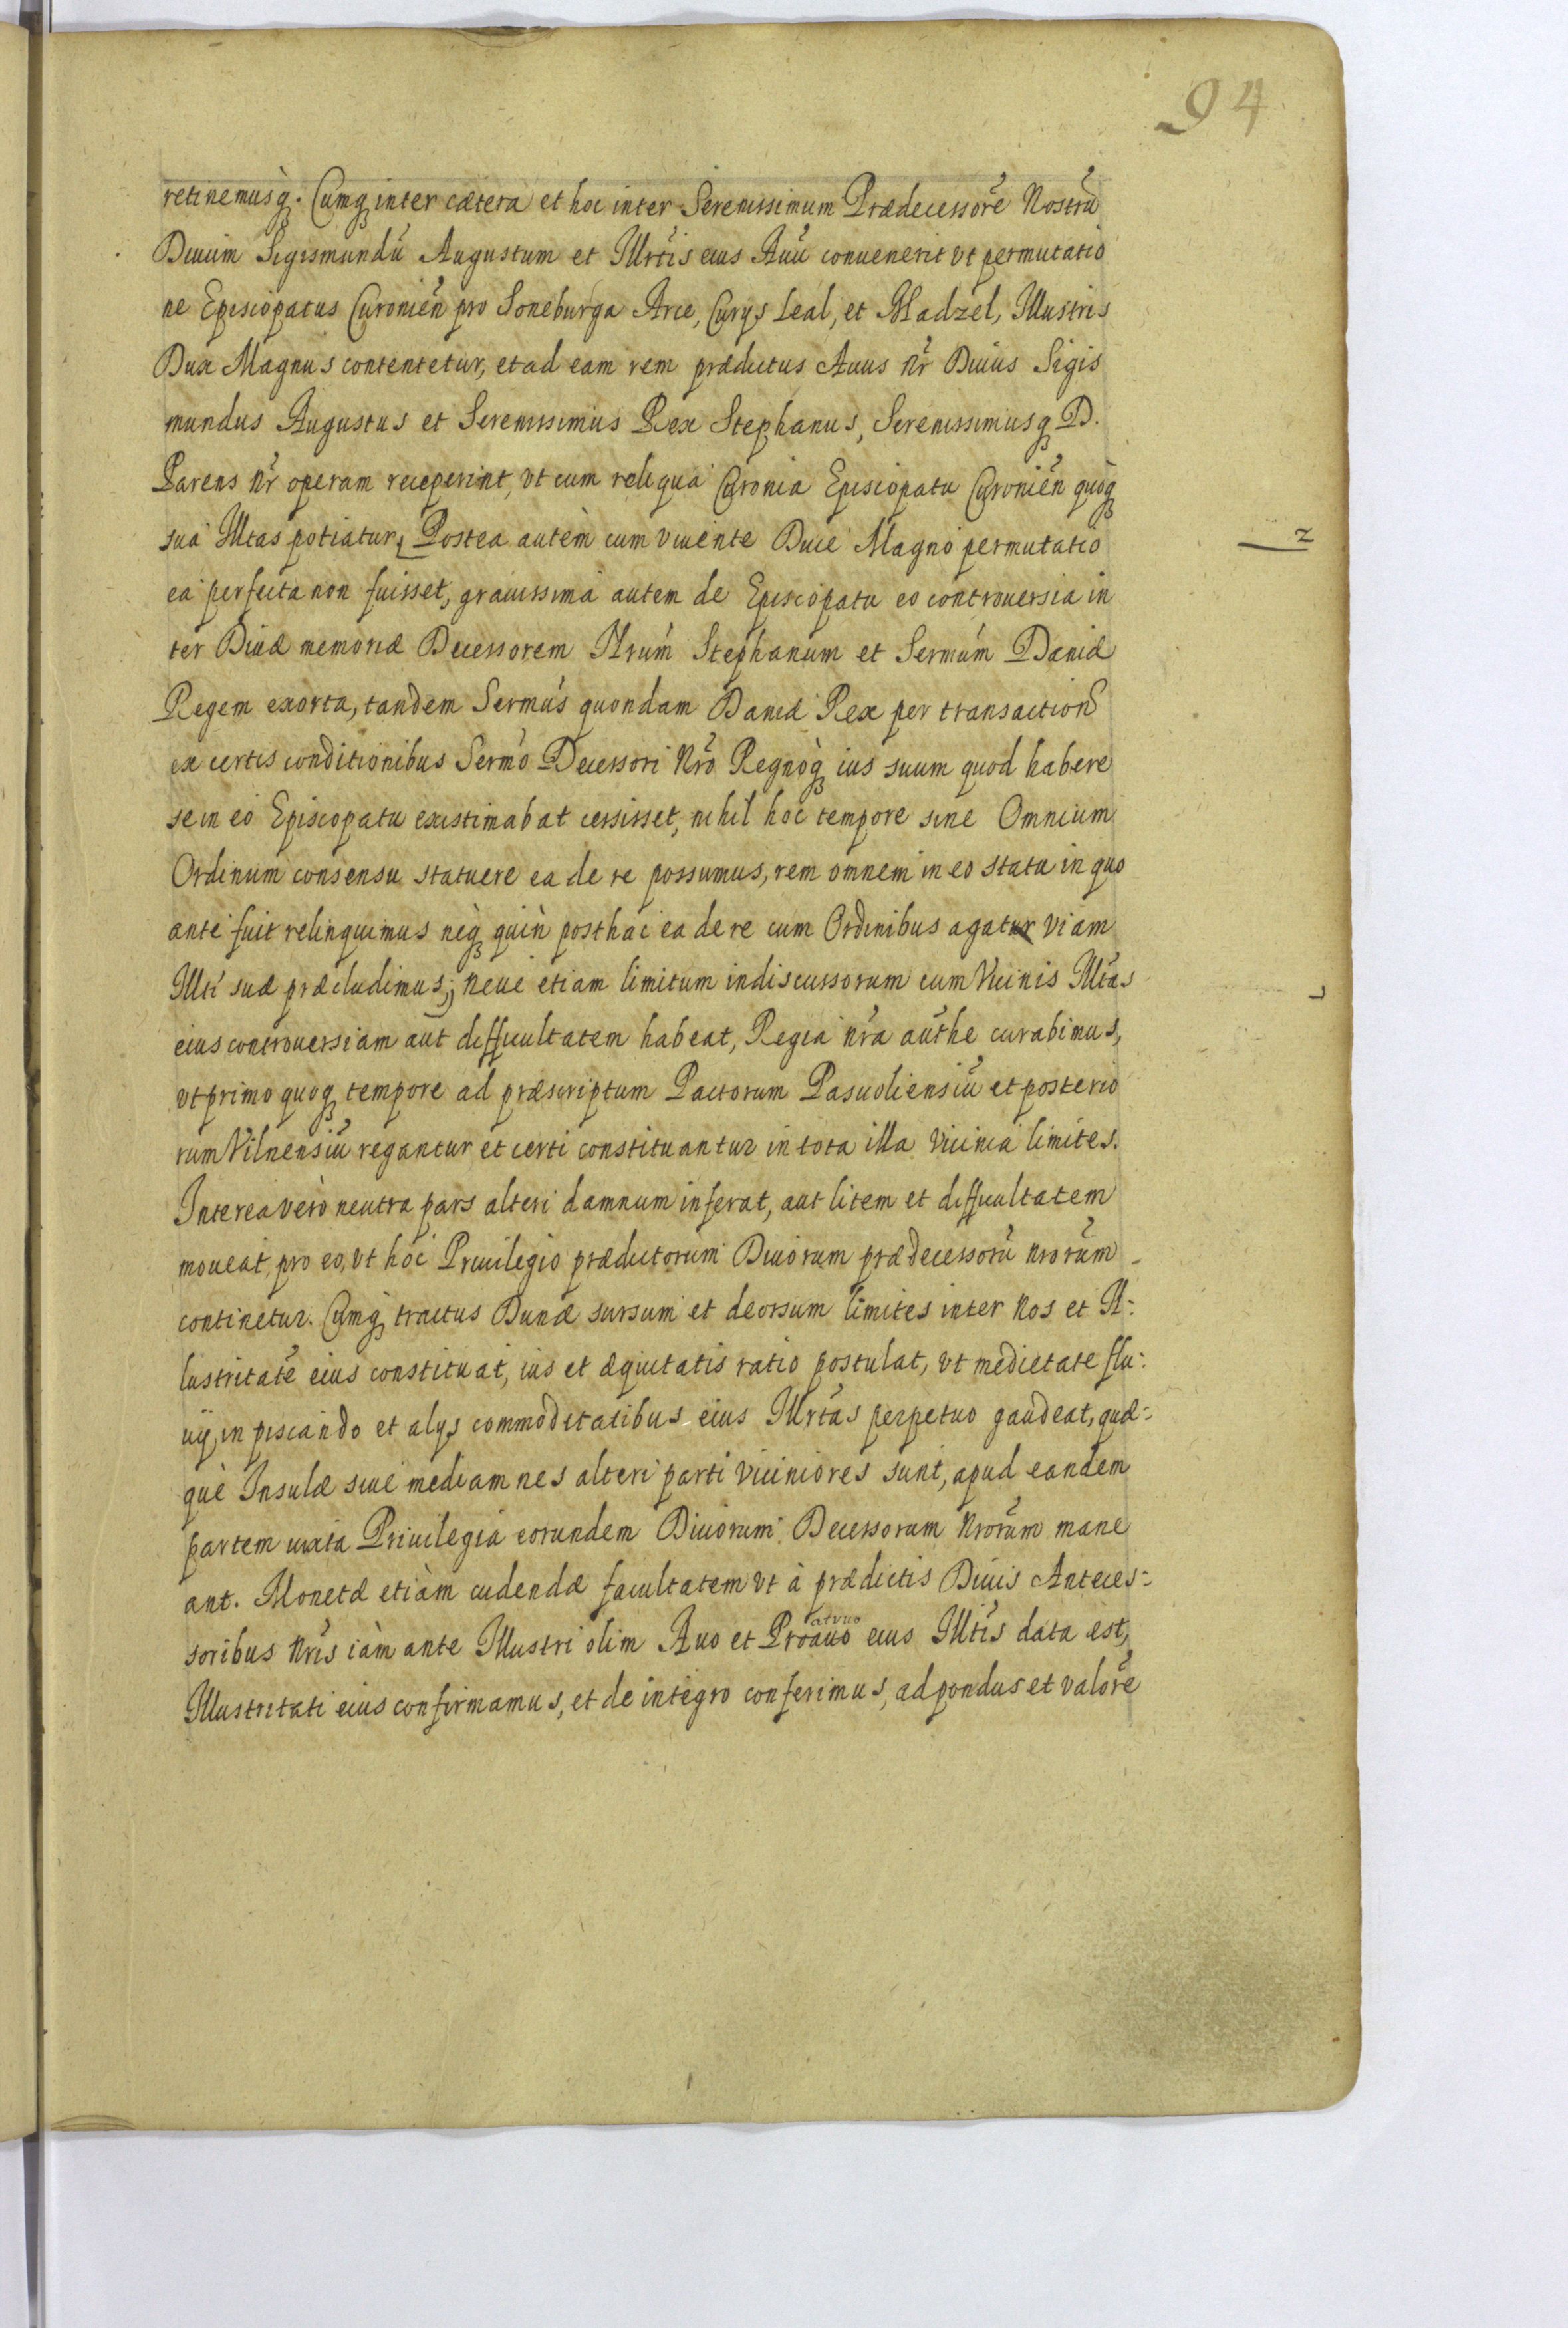 94
retinemusq́. Cumq inter cætera et hoc inter Serenissimum Prædecessorẽ Nostrũ
Diuum Sigismundũ Augustum et Illrtis eius Auũ conuenerit vt permutatio
ne Episcopatus Curonieñ pro Soneburga Arce, Curys Leal, et Hadzel, Illustris
Dux Magnus contentetur, et ad eam rem prædictus Auus Nr̃ Diuus Sigis
mundus Augustus et Serenissimus Rex Stephanus, Serenissimusq D.
Parens Nr̃ operam receperint, vt cum reliqua Curonia Episcopatu Curonieñ quoq
sua Illtas potiatur, Postea autèm cum viuente Duce Magno permutatio
ea perfecta non fuisset, grauissima autem de Episcopatu eo controuersia in
ter Diuæ memoriæ Decessorem Nrum Stephanum et Sermum Daniæ
Regem exorta, tandem Sermus quondam Daniæ Rex per transactionẽ
ex certis conditionibus Sermo Decessori Nrõ Regnoq́ ius suum quod habere
se in eo Episcopatu existimabat cessisset, nihil hoc tempore sine Omnium
Ordinum consensu statuere ea de re possumus, rem omnem in eo statu in quo
ante fuit relinquimus neq́ quin posthac ea de re cum Ordinibus agatur viam
Illti suæ præcludimus; neue etiam limitum indiscussorum cum Vicinis Illtas
eius controuersiam aut difficultatem habeat, Regia nrã authe curabimus,
vt primo quoq tempore ad præscriptum Pactorum Pasuoliensiũ et posterio
rum Vilnensiũ regantur et certi constituantur in tota illa vicinia limites.
Interea verò neutra pars alteri damnum inferat, aut litem et difficultatem
moueat, pro eo, vt hoc Priuilegio prædictorum Diuorum prædecessorũ nrorũm
continetur. Cumq́ tractus Dunæ sursum et deorsum limites inter Nos et Il:
lustritatẽ eius constituat, ius et æquitatis ratio postulat, vt medietate flu:
uij, in piscando et alys commoditatibus eius Illrtas perpetuo gaudeat, quæ:
què Insulæ siue mediamnes alteri parti viciniores sunt, apud eandem
partem iuxta Priuilegia eorundem Diuorum Decessorum Nrorũm mane
ant. Monetæ etiàm cudendæ facultatem vt à prædictis Diuis Anteces:
soribus Nrĩs iàm ante Illustri olim Auo et Proauo atruo eius Illtĩs data est,
Illustritati eius confirmamus, et de integro conferimus, ad pondus et valorẽ